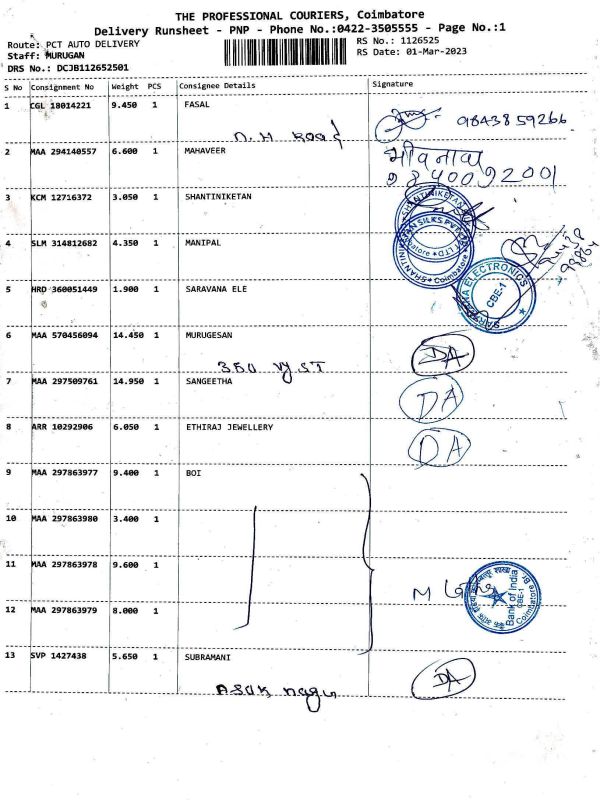 THE PROFESSIONAL COURIERS, Coimbatore
Delivery Runsheet - PNP - Phone No.:0422-3505555 - Page No.:1
Route: PCT AUTO DELIVERY
RS No.: 1126525
Staff: MURUGAN
RS Date: 01-Mar-2023
DRS No.: DCJB112652501
S No Consignment No Weight PCS Consignee Details Signature
1 CGL 18014221 9.450 1 FASAL
9843859266
N.H Road
2 MAA 294140557 6.600 1 MAHAVEER
9840092001
3 KCM 12716372 3.050 1 SHANTINIKETAN
SHANTINIKETAN SILKS PVT LTD Coimbatore
4 SLM 314812682 4.350 1 MANIPAL
ELECTRONICS CBE-1
5 HRD 360051449 1.900 1 SARAVANA ELE
6 MAA 570456094 14.450 1 MURUGESAN
DA
350 VY ST
7 MAA 297509761 14.950 1 SANGEETHA
DA
8 ARR 10292906 6.050 1 ETHIRAJ JEWELLERY
DA
9 MAA 297863977 9.400 1 BOI
10 MAA 297863980 3.400 1
11 MAA 297863978 9.600 1
M
Bank of India CBE-1 Coimbatore
12 MAA 297863979 8.000 1
13 SVP 1427438 5.650 1 SUBRAMANI
DA